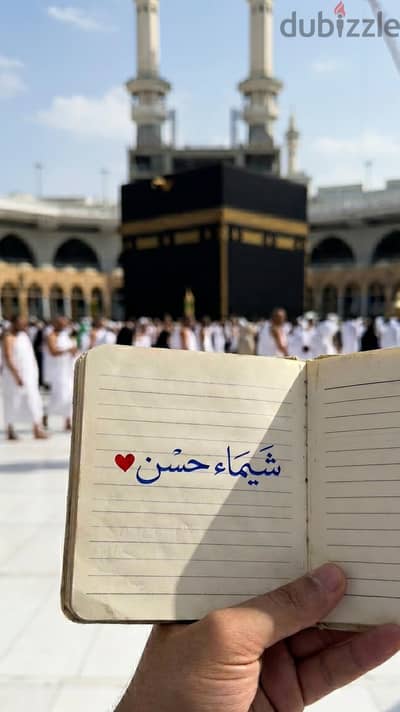 dubizzle
شَيمَاء حسْن